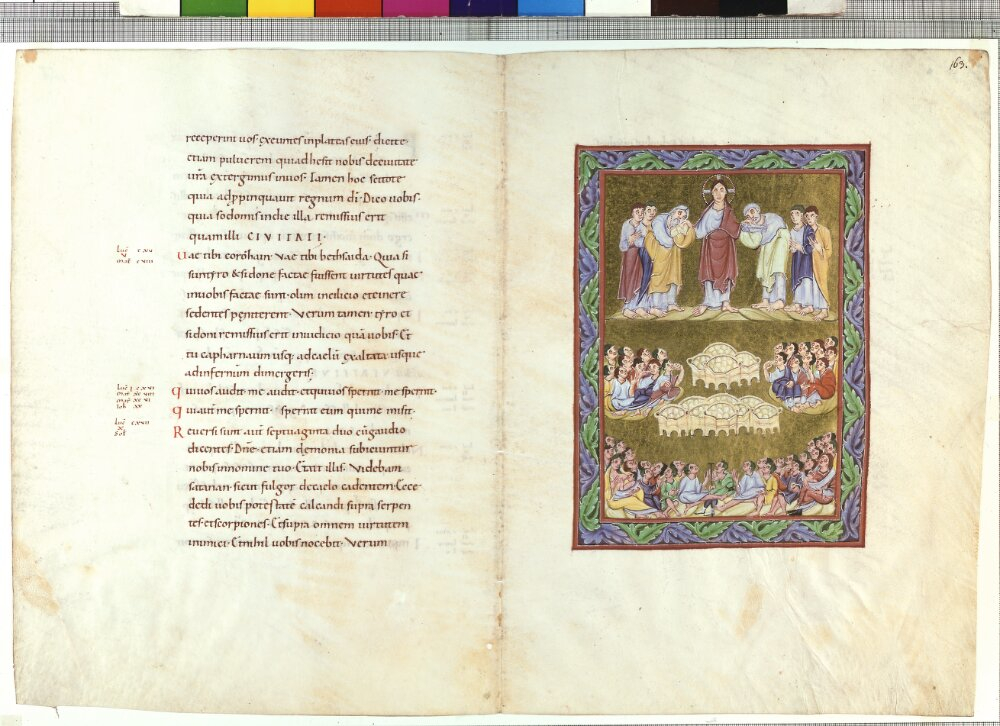 163.
receperint uos· exeuntes inplateas eius· dicite·
etiam puluerem qui adhesit nobis deciuitate
ur̄a extergimus inuos· Tamen hoc scitote
quia adp̱pinquauit regnum dī· Dico uobis·
quia sodomis indie illa remissius erit
quam illi CIVITATI·
Uae tibi corozhain· Vae tibi bethsaida· Quia si
intyro & sidone factae fuissent uirtutes quae
inuobis factae sunt· olim incilicio etcinere
sedentes peniterent· Verum tamen tyro et
sidoni remissius erit iniudicio quā uobis· Et
tu capharnaum usq; adcaelū exaltata usque
adinfernum dimergeris·
Qui uos audit· me audit· etqui uos spernit· me spernit·
Qui aut̄ me spernit· spernit eum qui me misit·
Reuersi sunt aut̄ septuaginta duo cūgaudio
dicentes· Dn̄e· etiam demonia subiciuntur
nobis innomine tuo· Etait illis· Videbam
satanan· sicut fulgor decaelo cadentem· Ecce
dedi uobis potestatē calcandi supra serpen
tes· etscorpiones· Etsupra omnem uirtutem
inimici· Etnihil uobis nocebit· Verum